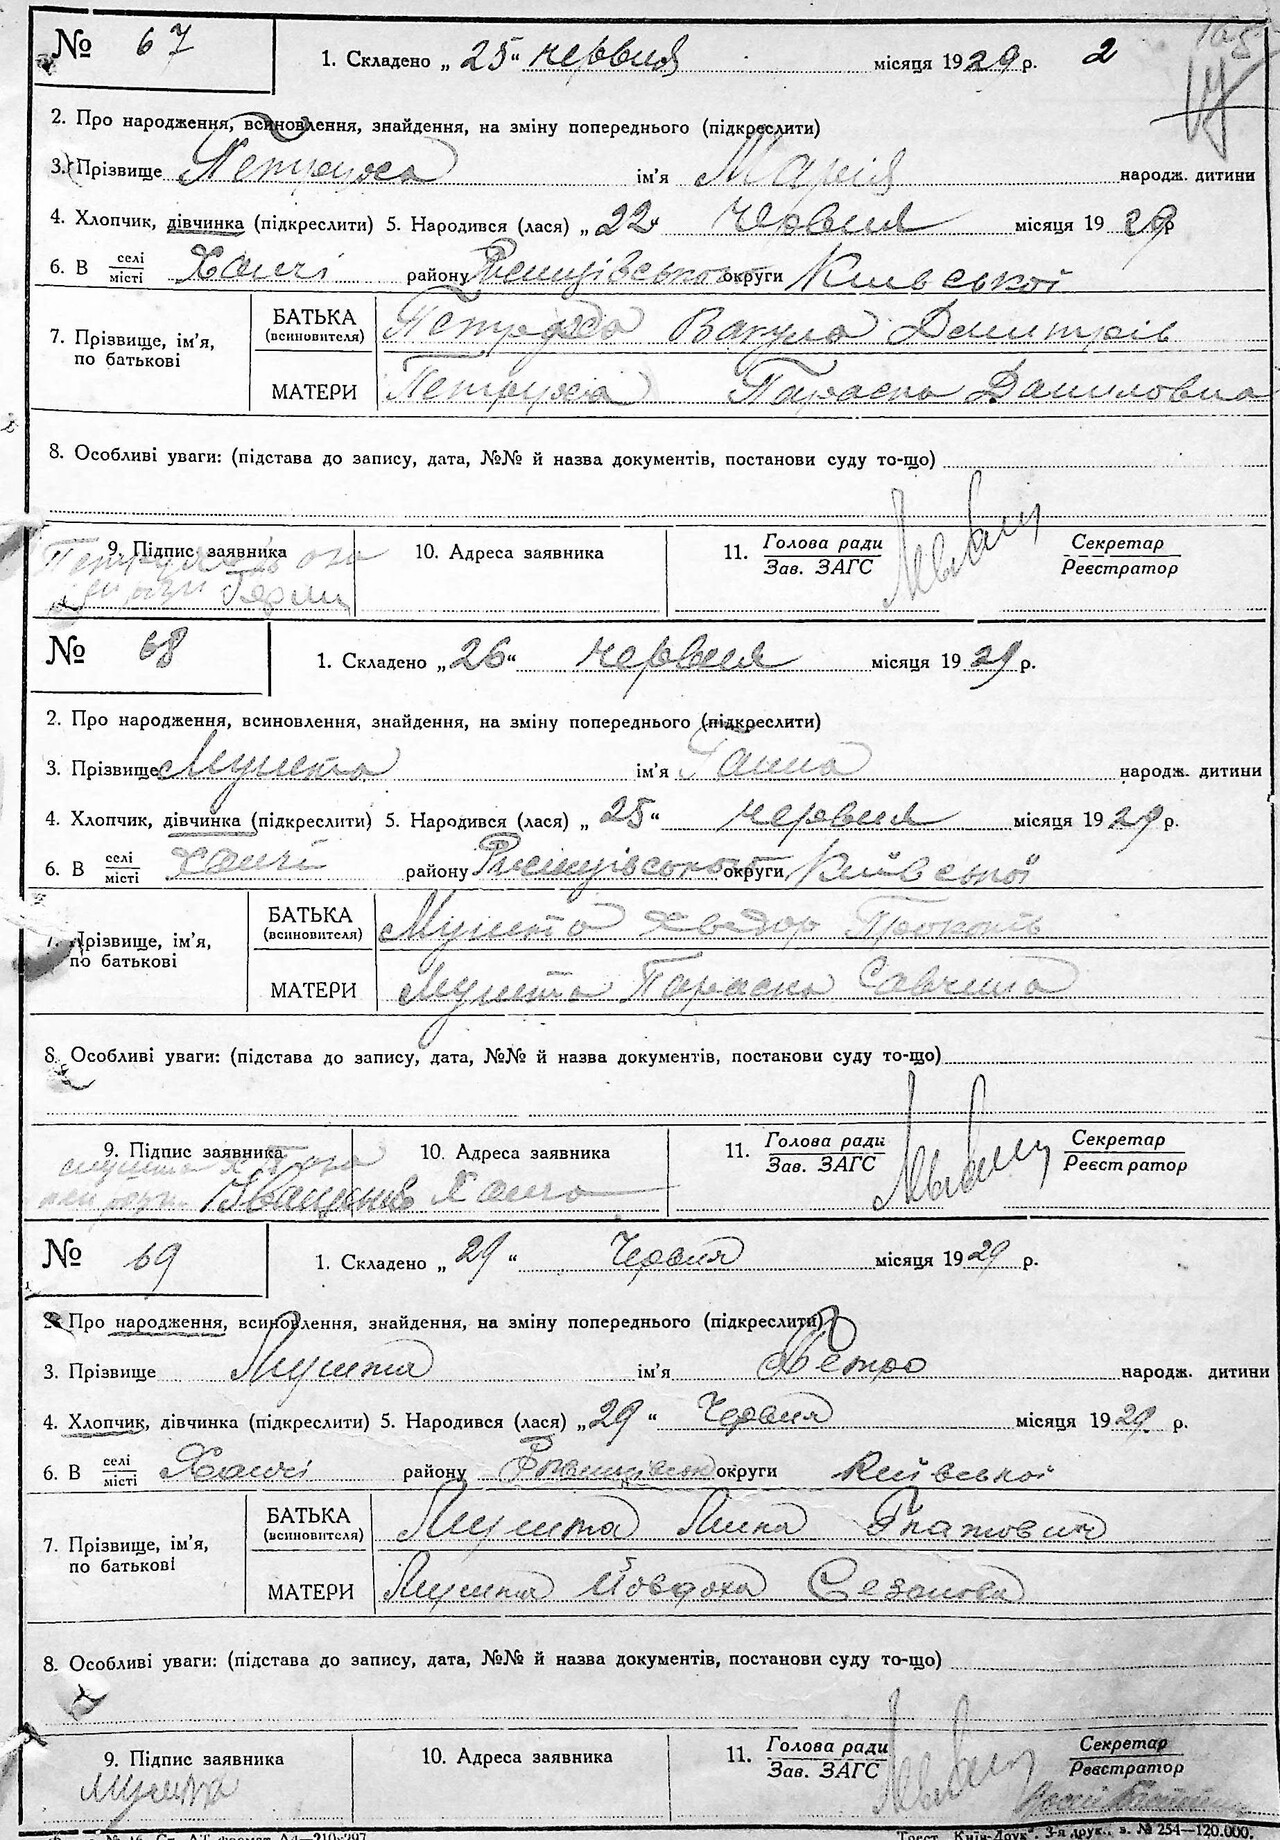 № 67 1. Складено „ 25 “ червня місяця 1929 р. 2 105
2. Про народження, всиновлення, знайдення, на зміну попереднього (підкреслити)
3. Прізвище Петруха ім'я Марія народж. дитини
4. Хлопчик, дівчинка (підкреслити) 5. Народився (лася) „ 22 “ червня місяця 1929 р
6. В селі місті Ханчі району округи Київської
7. Прізвище, ім'я, по батькові БАТЬКА (всиновителя) Петруха Вакула Дмитрів
МАТЕРИ Петруха Параска Даниловна
8. Особливі уваги: (підстава до запису, дата, №№ й назва документів, постанови суду то-що)
9. Підпис заявника 10. Адреса заявника 11. Голова ради Зав. ЗАГС Секретар Реєстратор
№ 68 1. Складено „ 26 “ червня місяця 1929 р.
2. Про народження, всиновлення, знайдення, на зміну попереднього (підкреслити)
3. Прізвище Мушта ім'я Ганна народж. дитини
4. Хлопчик, дівчинка (підкреслити) 5. Народився (лася) „ 25 “ червня місяця 1929 р.
6. В селі місті Ханчі району округи Київської
7. Прізвище, ім'я, по батькові БАТЬКА (всиновителя) Мушта Хведор Прокопів
МАТЕРИ Мушта Параска Савчина
8. Особливі уваги: (підстава до запису, дата, №№ й назва документів, постанови суду то-що)
9. Підпис заявника 10. Адреса заявника 11. Голова ради Зав. ЗАГС Секретар Реєстратор
№ 69 1. Складено „ 29 “ Червня місяця 1929 р.
2. Про народження, всиновлення, знайдення, на зміну попереднього (підкреслити)
3. Прізвище Мушта ім'я Петро народж. дитини
4. Хлопчик, дівчинка (підкреслити) 5. Народився (лася) „ 29 “ Червня місяця 1929 р.
6. В селі місті Ханчі району округи Київської
7. Прізвище, ім'я, по батькові БАТЬКА (всиновителя) Мушта Мина Гнатович
МАТЕРИ Мушта Йовдоха
8. Особливі уваги: (підстава до запису, дата, №№ й назва документів, постанови суду то-що)
9. Підпис заявника 10. Адреса заявника 11. Голова ради Зав. ЗАГС Секретар Реєстратор
Мушта
Трест „Київ-Друк“, 3-я друк., з. № 254—120.000.